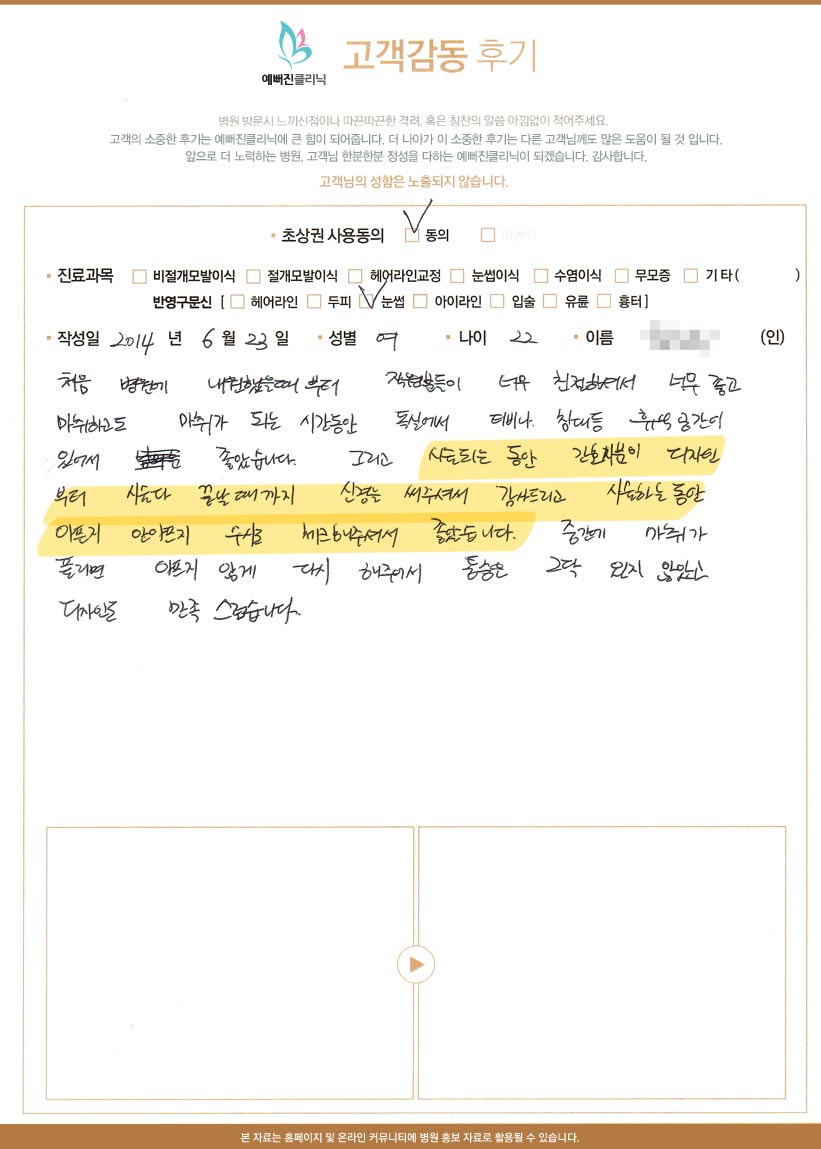 예뻐진클리닉
고객감동 후기
병원 방문시 느끼신점이나 따끈따끈한 격려, 혹은 칭찬의 말씀 아낌없이 적어주세요.
고객의 소중한 후기는 예뻐진클리닉에 큰 힘이 되어줍니다. 더 나아가 이 소중한 후기는 다른 고객님께도 많은 도움이 될 것 입니다.
앞으로 더 노력하는 병원, 고객님 한분한분 정성을 다하는 예뻐진클리닉이 되겠습니다. 감사합니다.
고객님의 성함은 노출되지 않습니다.
초상권 사용동의 동의
진료과목 비절개모발이식 절개모발이식 헤어라인교정 눈썹이식 수염이식 무모증 기타 ( )
반영구문신 [ 헤어라인 두피 눈썹 아이라인 입술 유륜 흉터 ]
작성일 2014 년 6 월 23 일 성별 여 나이 22 이름 (인)
처음 병원에 내원했을때부터 직원분들이 너무 친절하셔서 너무 좋고
마취하고도 마취가 되는 시간동안 독실에서 티비나 침대등 휴식 공간이
있어서 좋았습니다. 그리고 시술되는 동안 간호사분이 디자인
부터 시술다 끝날때까지 신경을 써주셔서 감사드리고 시술하는동안
아픈지 안아픈지 수시로 체크해주셔서 좋았습니다. 중간에 마취가
풀리면 아프지 않게 다시 해주어서 통증은 그닥 있지 않았고
디자인도 만족스럽습니다.
본 자료는 홈페이지 및 온라인 커뮤니티에 병원 홍보 자료로 활용될 수 있습니다.